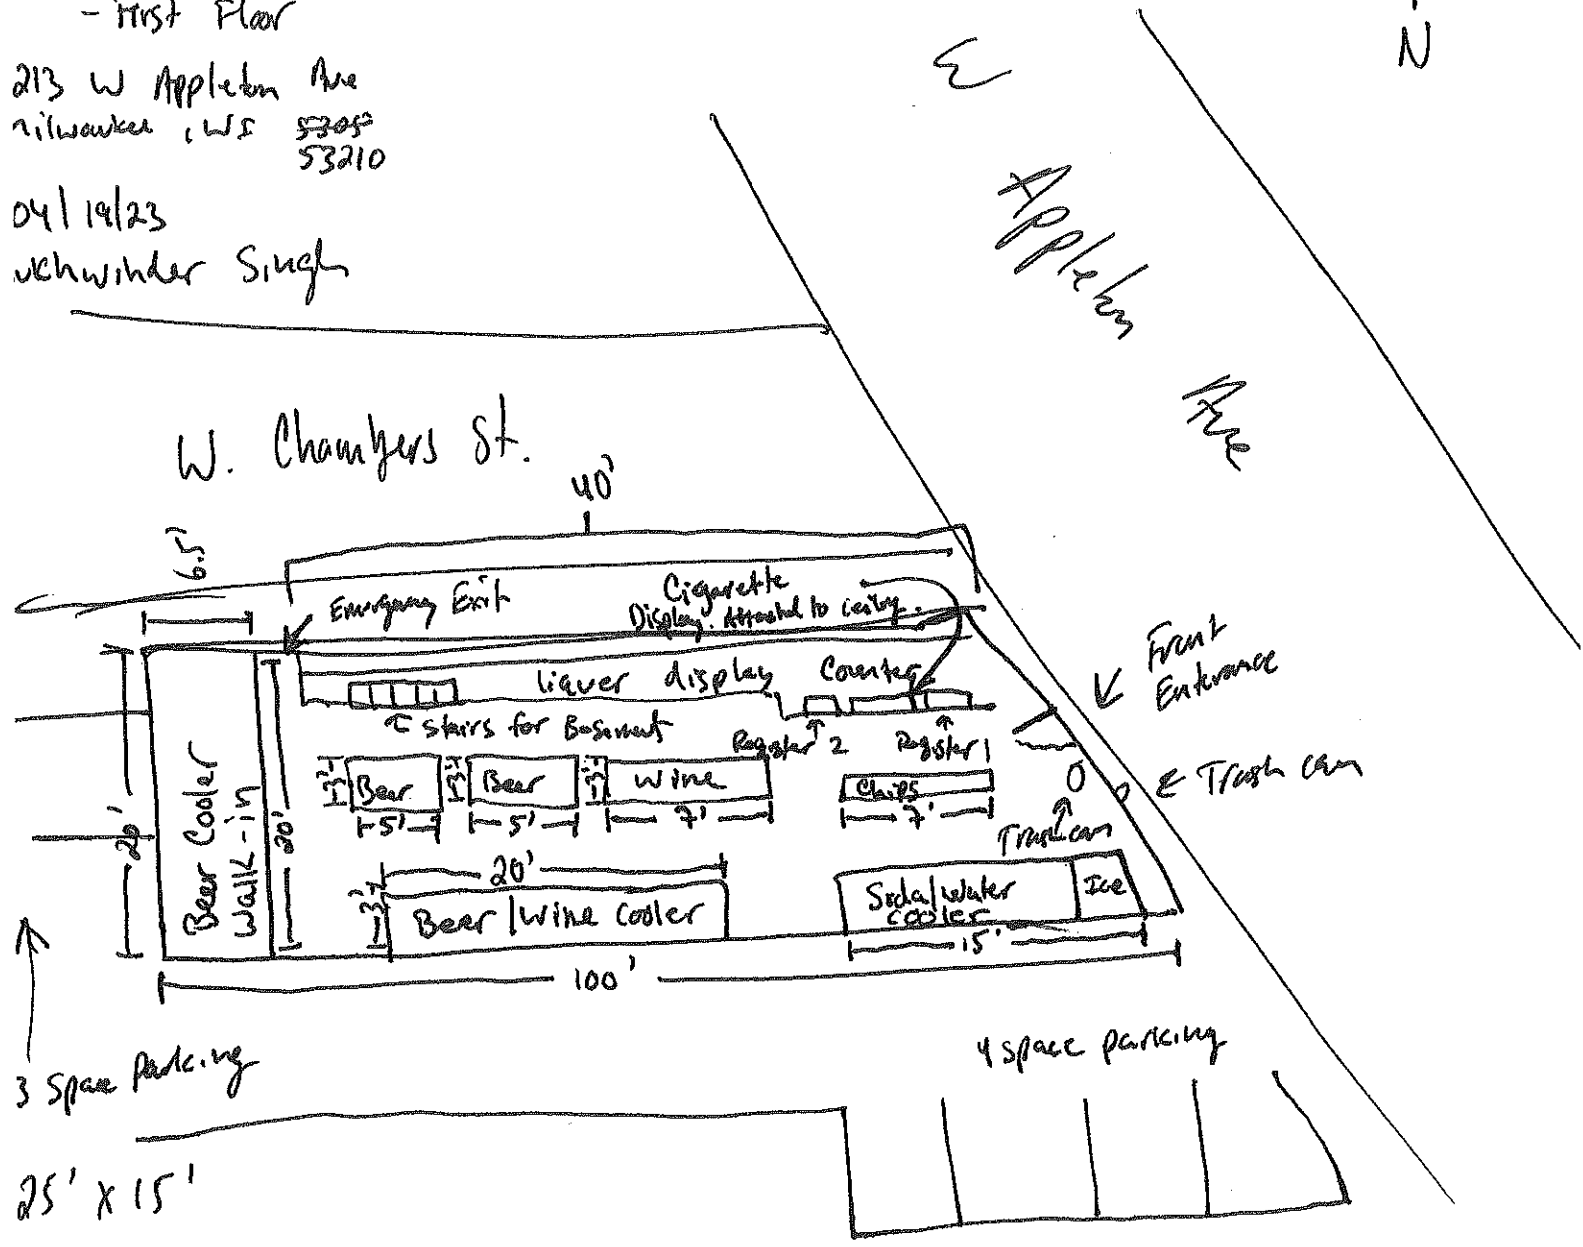 - First Floor
N
213 W Appleton Ave
Milwaukee, WI 53052
53210
04/19/23
ukhwinder Singh
W Appleton Ave
W. Chambers St.
40'
6.5'
Emergency Exit
Cigarette
Display. Attached to ceiling.
Front
Enterance
liquer display
Counter
↑ stairs for Basement
Register 2
Register 1
Beer Cooler
Walk-in
20'
20'
3'
Beer
3'
Beer
3'
Wine
Chips
5'
5'
7'
7'
Trash can
Trash can
20'
3'
Beer/Wine Cooler
Soda/Water
cooler
Ice
15'
100'
3 Space Parking
4 space parking
25' x 15'